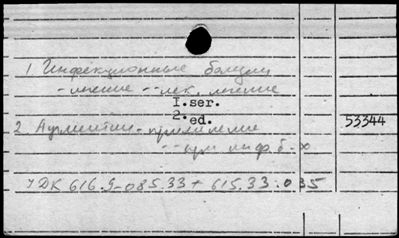 1 Инфекционные болезни
- лечение -- лек. лечение
I. ser.
2. ed.
2 - применение
53344
-- при инф. б-х
УДК 616.9-085.33 + 615.33:035